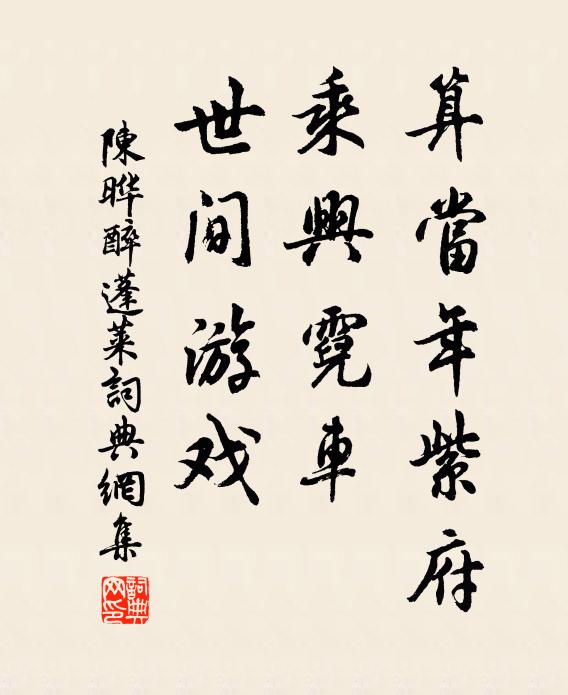 算當年紫府
乘興霓車
世间游戏
陳晔醉蓬萊詞典網集
詞典网印